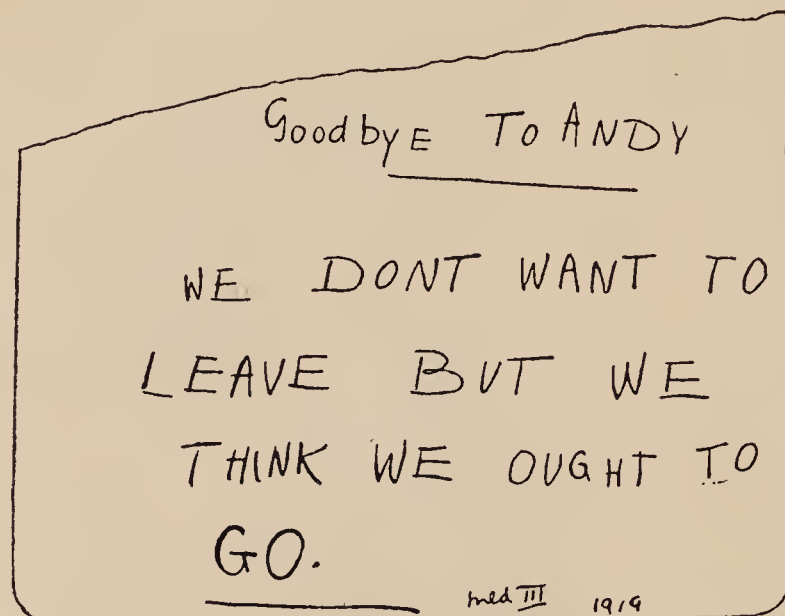 Goodbye To ANDY
WE DONT WANT TO
LEAVE BUT WE
THINK WE OUGHT TO
GO.
med III 1919